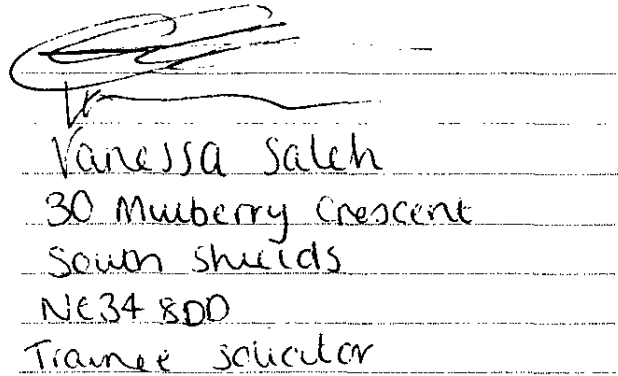 Vanessa Saleh
30 Mulberry Crescent
South Shields
NE34 8DD
Trainee solicitor